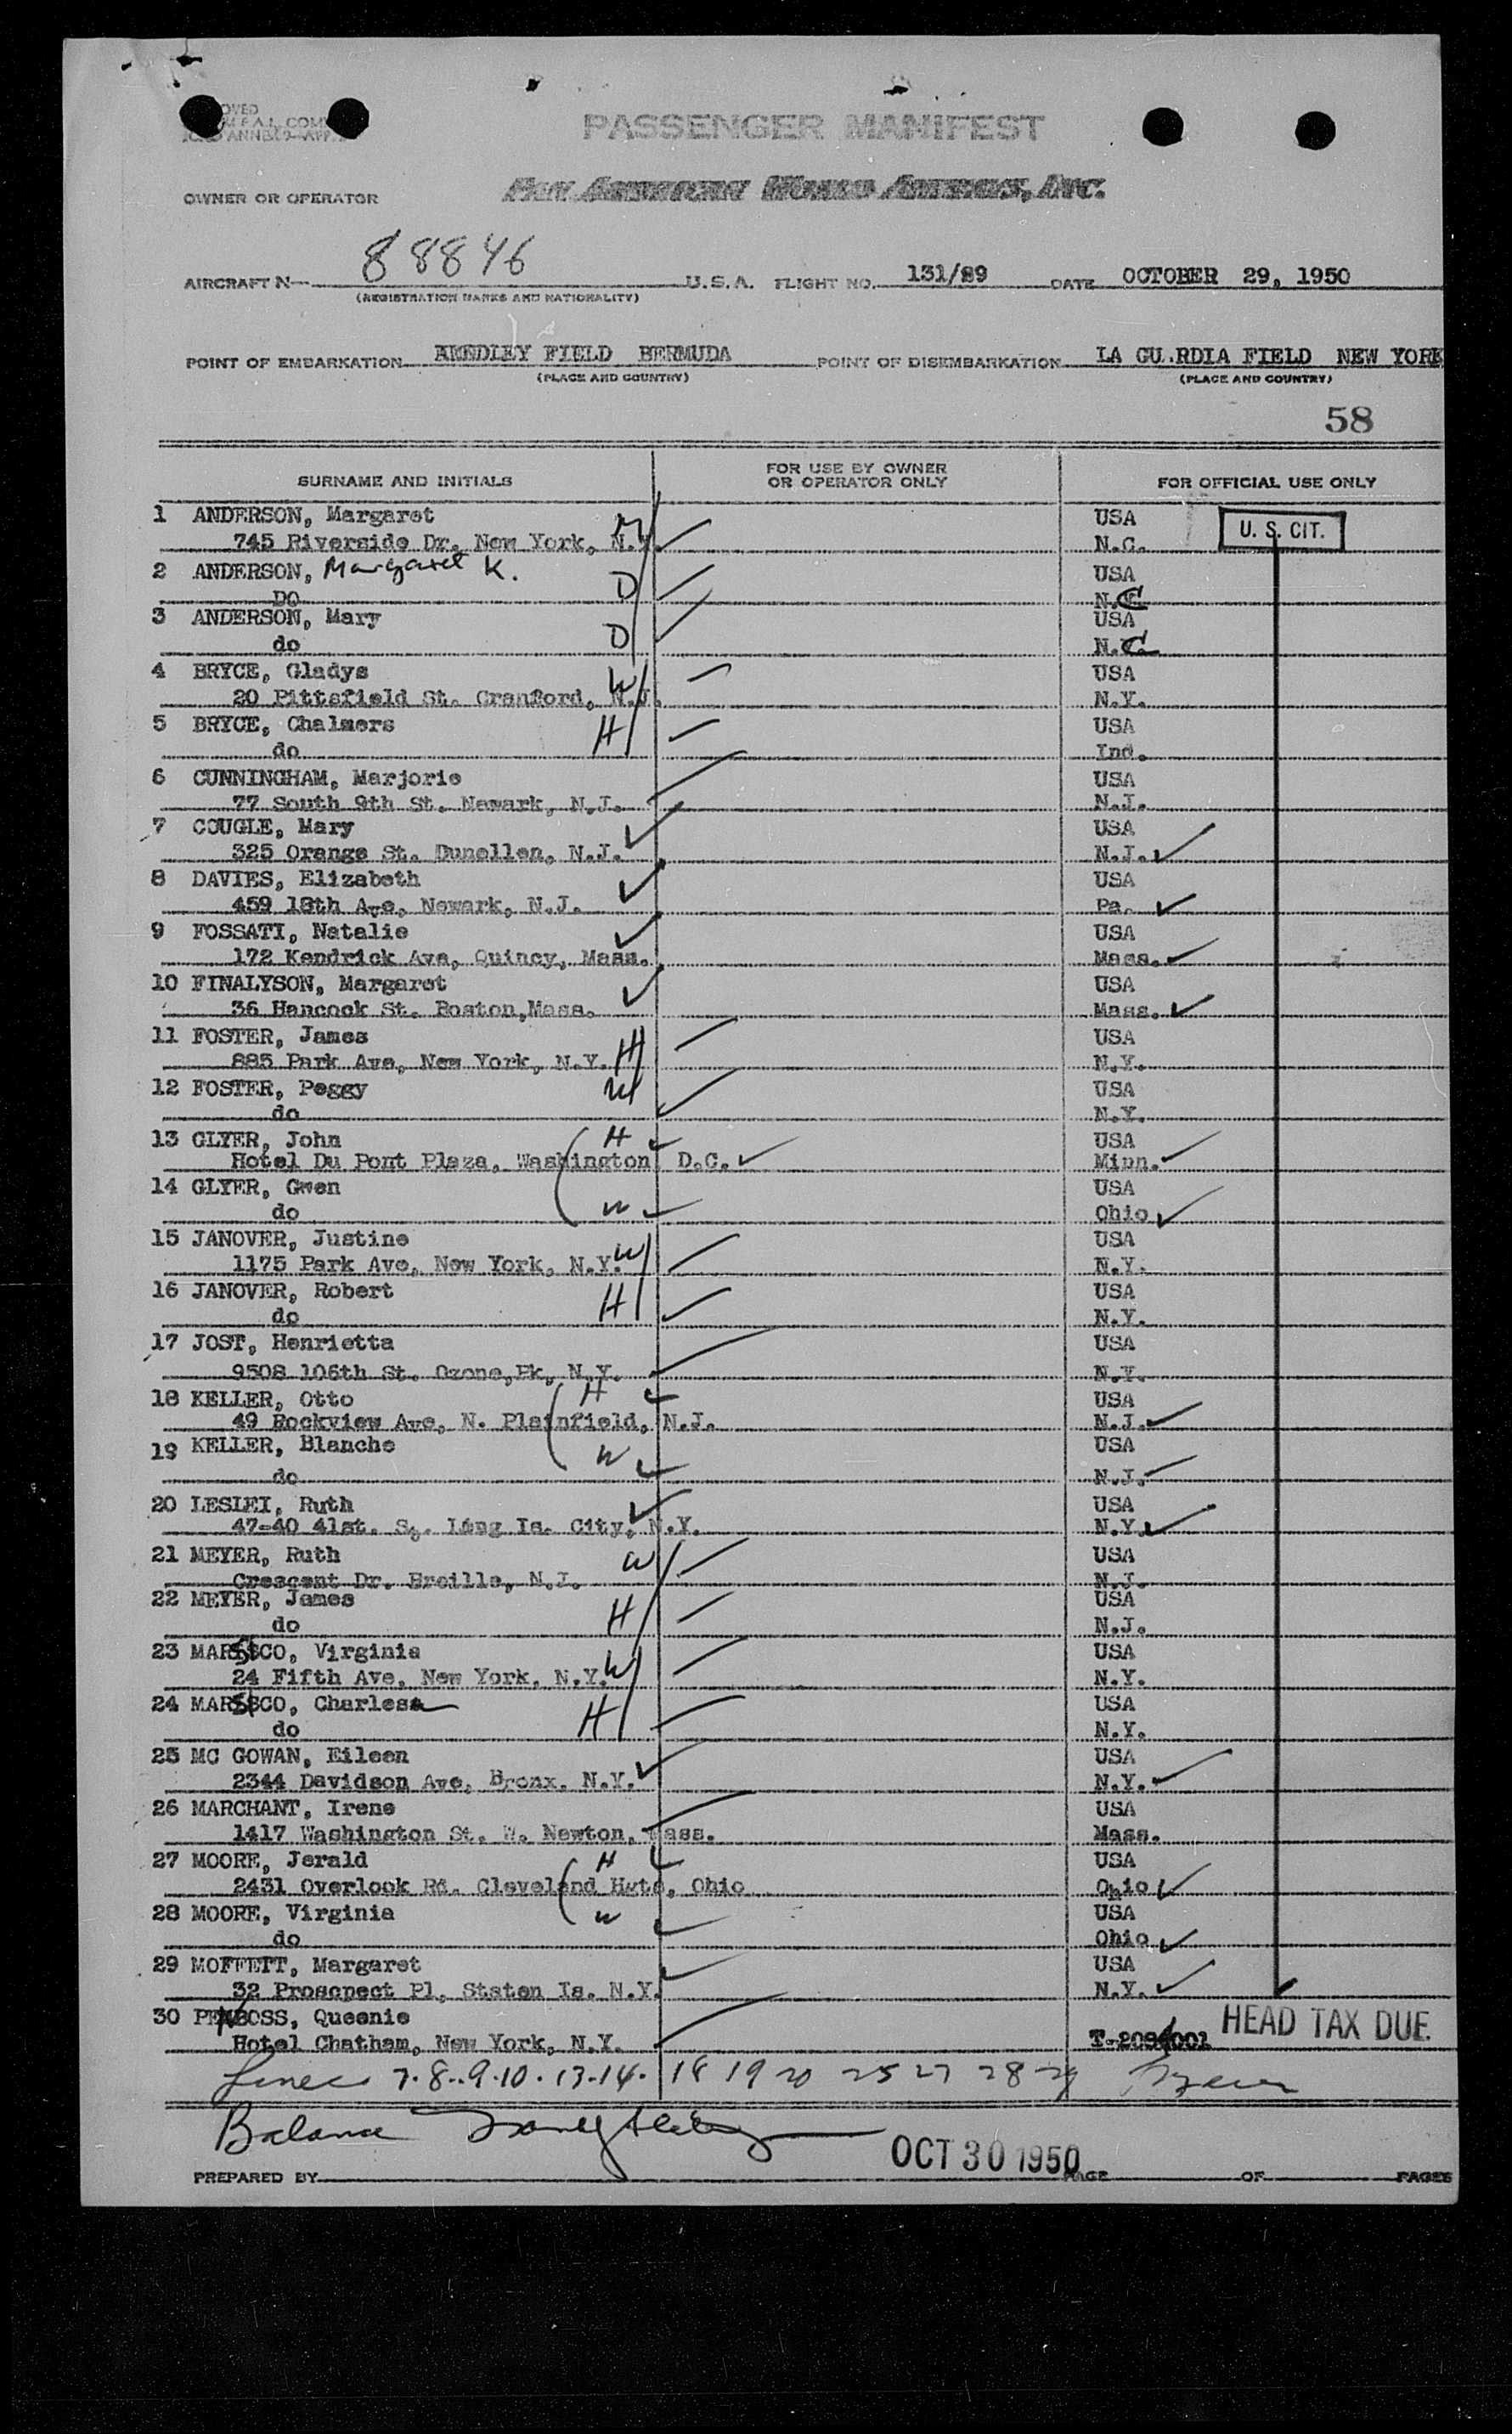 PASSENGER MANIFEST
OWNER OR OPERATOR
PAN AMERICAN WORLD AIRWAYS, INC.
AIRCRAFT N— 88846 U.S.A. FLIGHT NO. 131/89 DATE OCTOBER 29, 1950
(REGISTRATION MARKS AND NATIONALITY)
POINT OF EMBARKATION KINDLEY FIELD BERMUDA POINT OF DISEMBARKATION LA GU.RDIA FIELD NEW YORK
(PLACE AND COUNTRY) (PLACE AND COUNTRY)
58
SURNAME AND INITIALS FOR USE BY OWNER OR OPERATOR ONLY FOR OFFICIAL USE ONLY
1 ANDERSON, Margaret M USA U. S. CIT.
745 Riverside Dr. New York, N.Y. N.C.
2 ANDERSON, Margaret K. D USA
DO N.C
3 ANDERSON, Mary D USA
do N.C.
4 BRYCE, Gladys W USA
20 Pittsfield St. Cranford, N.J. N.Y.
5 BRYCE, Chalmers H USA
do Ind.
6 CUNNINGHAM, Marjorie USA
77 South 9th St. Newark, N.J. N.J.
7 COUGLE, Mary USA
325 Orange St. Dunellen, N.J. N.J.
8 DAVIES, Elizabeth USA
459 18th Ave, Newark, N.J. Pa.
9 FOSSATI, Natalie USA
172 Kendrick Ave, Quincy, Mass. Mass.
10 FINALYSON, Margaret USA
36 Hancock St. Boston,Mass. Mass.
11 FOSTER, James H USA
885 Park Ave, New York, N.Y. N.Y.
12 FOSTER, Peggy W USA
do N.Y.
13 GLYER, John H USA
Hotel Du Pont Plaza, Washington, D.C. Minn.
14 GLYER, Gwen W USA
do Ohio
15 JANOVER, Justine W USA
1175 Park Ave, New York, N.Y. N.Y.
16 JANOVER, Robert H USA
do N.Y.
17 JOST, Henrietta USA
9508 106th St. Ozone,Pk, N.Y. N.Y.
18 KELLER, Otto H USA
49 Rockview Ave, N. Plainfield, N.J. N.J.
19 KELLER, Blanche W USA
do N.J.
20 LESLEI, Ruth USA
47-40 41st. St. Long Is. City, N.Y. N.Y.
21 MEYER, Ruth W USA
Crescent Dr. Breille, N.J. N.J.
22 MEYER, James H USA
do N.J.
23 MARSICO, Virginia W USA
24 Fifth Ave, New York, N.Y. N.Y.
24 MARSICO, Charles H USA
do N.Y.
25 MC GOWAN, Eileen USA
2344 Davidson Ave, Bronx. N.Y. N.Y.
26 MARCHANT, Irene USA
1417 Washington St. W. Newton, Mass. Mass.
27 MOORE, Jerald H USA
2431 Overlook Rd. Cleveland Hgts, Ohio Ohio
28 MOORE, Virginia W USA
do Ohio
29 MOFFETT, Margaret USA
32 Prosepect Pl, Staten Is. N.Y. N.Y.
30 PENROSS, Queenie HEAD TAX DUE
Hotel Chatham, New York, N.Y.
Lines 7.8..9.10.13-14. 18 19 20 25 27 28 29
Balance
OCT 30 1950
PREPARED BY PAGE OF PAGES